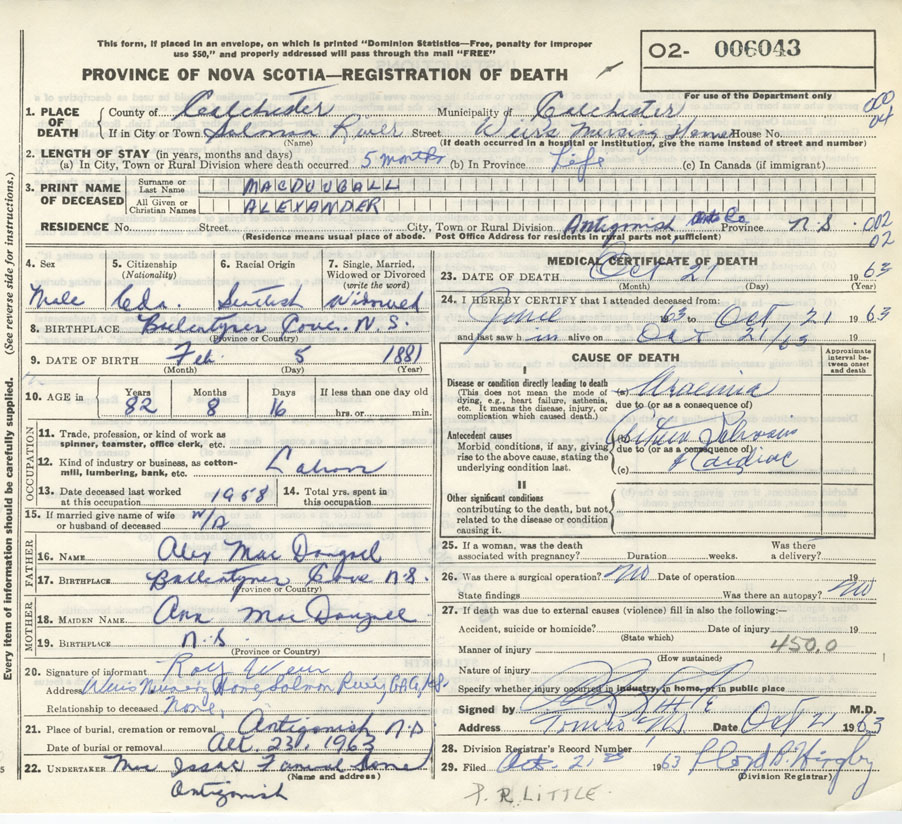 This form, if placed in an envelope, on which is printed "Dominion Statistics—Free, penalty for improper
use $50," and properly addressed will pass through the mail "FREE"
O2- 006043
PROVINCE OF NOVA SCOTIA—REGISTRATION OF DEATH
For use of the Department only
1. PLACE OF DEATH County of Colchester Municipality of Colchester
If in City or Town Salmon River Street Weir's Nursing Home House No.
(Name) (If death occurred in a hospital or institution, give the name instead of street and number)
2. LENGTH OF STAY (in years, months and days)
(a) In City, Town or Rural Division where death occurred 5 months (b) In Province Life (c) In Canada (if immigrant)
3. PRINT NAME OF DECEASED Surname or Last Name MACDOUGALL
All Given or Christian Names ALEXANDER
RESIDENCE No. Street City, Town or Rural Division Antigonish Co Province N.S. 002
02
(Residence means usual place of abode. Post Office Address for residents in rural parts not sufficient)
4. Sex 5. Citizenship (Nationality) 6. Racial Origin 7. Single, Married, Widowed or Divorced (write the word)
Male Cdn. Scottish Widowed
8. BIRTHPLACE Ballentynes Cove. N.S.
(Province or Country)
9. DATE OF BIRTH Feb 5 1881
(Month) (Day) (Year)
10. AGE in Years Months Days If less than one day old
82 8 16 hrs. or min.
OCCUPATION
11. Trade, profession, or kind of work as spinner, teamster, office clerk, etc.
12. Kind of industry or business, as cotton-mill, lumbering, bank, etc. Labour
13. Date deceased last worked at this occupation 1958 14. Total yrs. spent in this occupation
15. If married give name of wife or husband of deceased
FATHER
16. NAME Alex MacDougall
17. BIRTHPLACE Ballentynes Cove N.S.
(Province or Country)
MOTHER
18. MAIDEN NAME Ann MacDougall
19. BIRTHPLACE N.S.
(Province or Country)
20. Signature of informant Roy Weir
Address Weirs Nursing Home, Salmon River, N.S.
Relationship to deceased None,
21. Place of burial, cremation or removal Antigonish N.S
Date of burial or removal Oct. 23, 1963
22. UNDERTAKER Mac Isaac Funeral Home
(Name and address)
Antigonish
MEDICAL CERTIFICATE OF DEATH
23. DATE OF DEATH Oct 21 1963
(Month) (Day) (Year)
24. I HEREBY CERTIFY that I attended deceased from:
June 63 to Oct 21 1963
and last saw h im alive on Oct 21/63 19
CAUSE OF DEATH
Approximate interval between onset and death
I
Disease or condition directly leading to death
(This does not mean the mode of dying, e.g., heart failure, asthenia, etc. It means the disease, injury, or complication which caused death.)
(a) Uraemia
due to (or as a consequence of)
Antecedent causes
Morbid conditions, if any, giving rise to the above cause, stating the underlying condition last.
(b) Arterio Sclerosis
due to (or as a consequence of)
(c) & Cardiac
II
Other significant conditions
contributing to the death, but not related to the disease or condition causing it.
25. If a woman, was the death associated with pregnancy? Duration weeks. Was there a delivery?
26. Was there a surgical operation? No Date of operation 19
State findings Was there an autopsy? No
27. If death was due to external causes (violence) fill in also the following:—
Accident, suicide or homicide? Date of injury 19
(State which)
Manner of injury 450.0
(How sustained)
Nature of injury
Specify whether injury occurred in industry, in home, or in public place
Signed by M.D.
Address Truro NS Date Oct 21 1963
28. Division Registrar's Record Number
29. Filed Oct. 21st 1963 Floyd B. Higby
(Division Registrar)
P. R. LITTLE.
Every item of information should be carefully supplied. (See reverse side for instructions.)